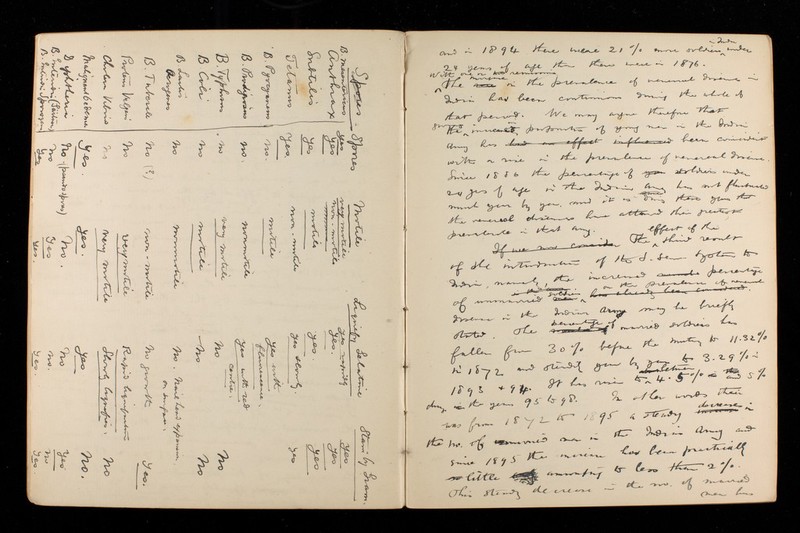 Species Spores Motile Liquefy Gelatine Stain by Gram.
B. mesentericus yes very motile yes rapidly yes
Anthrax yes non-motile yes yes
Subtilis yes motile yes. yes
Tetanus yes. non-motile yes slowly yes
B. Pyocyaneus no. motile yes with fluorescence.
B. Prodigiosus no. nonmotile yes with red centre.
B. Typhosus no very motile no no
B Coli no motile no no
B Lactis Aerogenes no nonmotile no. Nail head appearance on surface.
B. Tubercle no (?) non-motile no growth yes.
Proteus Vulgaris no very motile Rapid liquefaction
Cholera Vibrio no very motile Slowly liquefies. no
Malignant oedema yes yes. yes no.
Diphtheria no (pseudospores) no. no yes
no yes no. no
yes yes. yes. yes
and in 1894 there were 21% more soldiers under
24 years of age than there were in 1876.
The in the prevalence of venereal disease in
India has been continuous during the whole of
that period. We may argue therefore that
the increased proportion of young men in the Indian
Army has had no effect influenced been coincident
with a rise in the prevalence of venereal disease.
Since 1886 the percentage of soldiers under
years of age in the Indian Army has not fluctuated
much year by year, and it is during these years that
the venereal diseases have attained their greatest
prevalence in that army.
If we now consider The effect of the third result
of the introduction of the S. Ser. System to
India, namely, the increased percentage
of unmarried soldiers on the prevalence of venereal has already been considered.
disease in the Indian Army may be briefly
stated. The percentage of married soldiers has
fallen from 30% before the mutiny to 11.32%
in 1872 and steadily year by year to 3.29% in
1893 & 94. It has risen to 4.5% 5%
during the years 95 to 98. In other words there
was from 1872 to 1895 a steady decrease in
the no. of married men in the Indian Army and
since 1895 the increase has been practically
so little amounting to less than 2%.
This steady decrease in the no. of married
men has